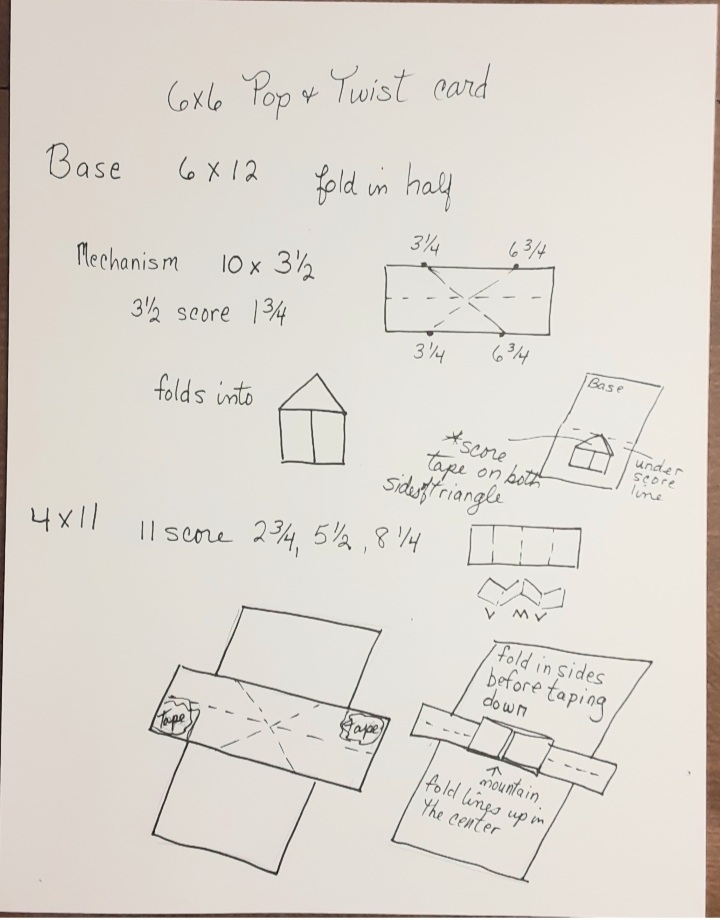 6x6 Pop & Twist card
Base 6 x 12 fold in half
Mechanism 10 x 3½
3½ score 1¾
3¼ 6¾
3¼ 6¾
folds into
Base
*score
tape on both
sides of triangle
under
score
line
4x11 11 score 2¾, 5½, 8¼
V M V
Tape Tape
fold in sides
before taping
down
↑
mountain
fold lines up in
the center